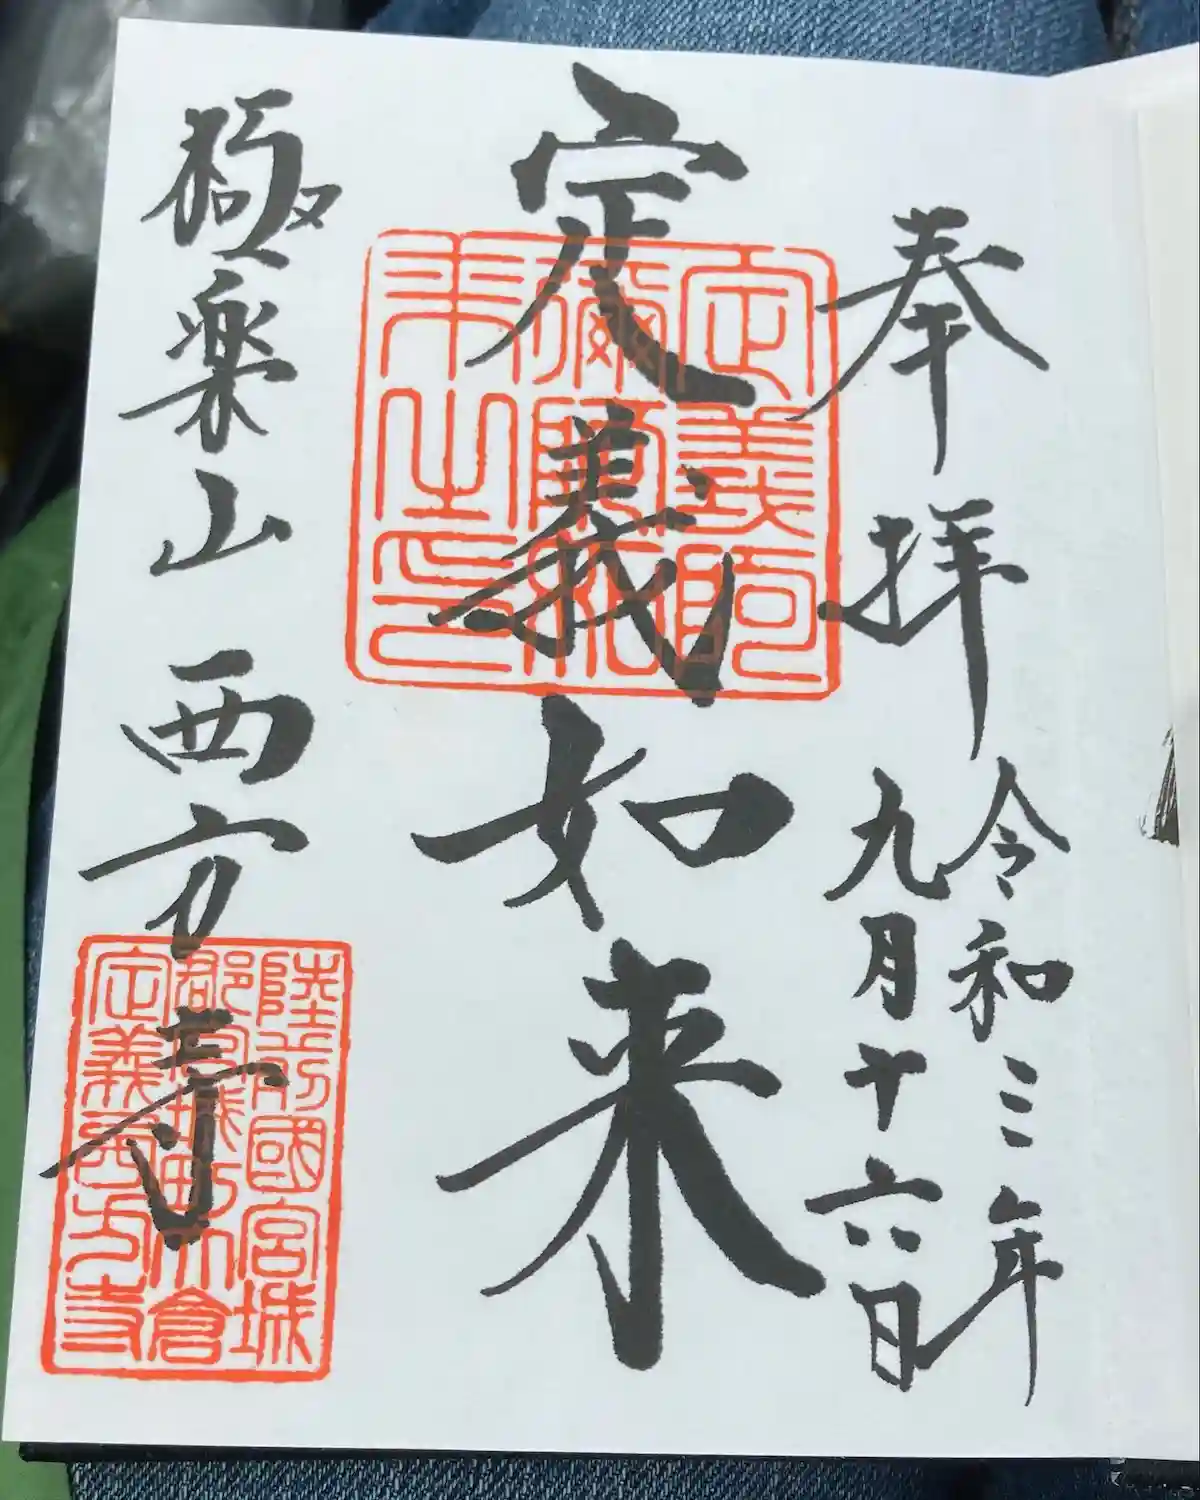 奉拝
令和三年
九月十六日
定義如来
定義阿
彌陀如
来之印
極楽山 西方寺
陸前國宮城
郡宮城町大倉
定義西方寺